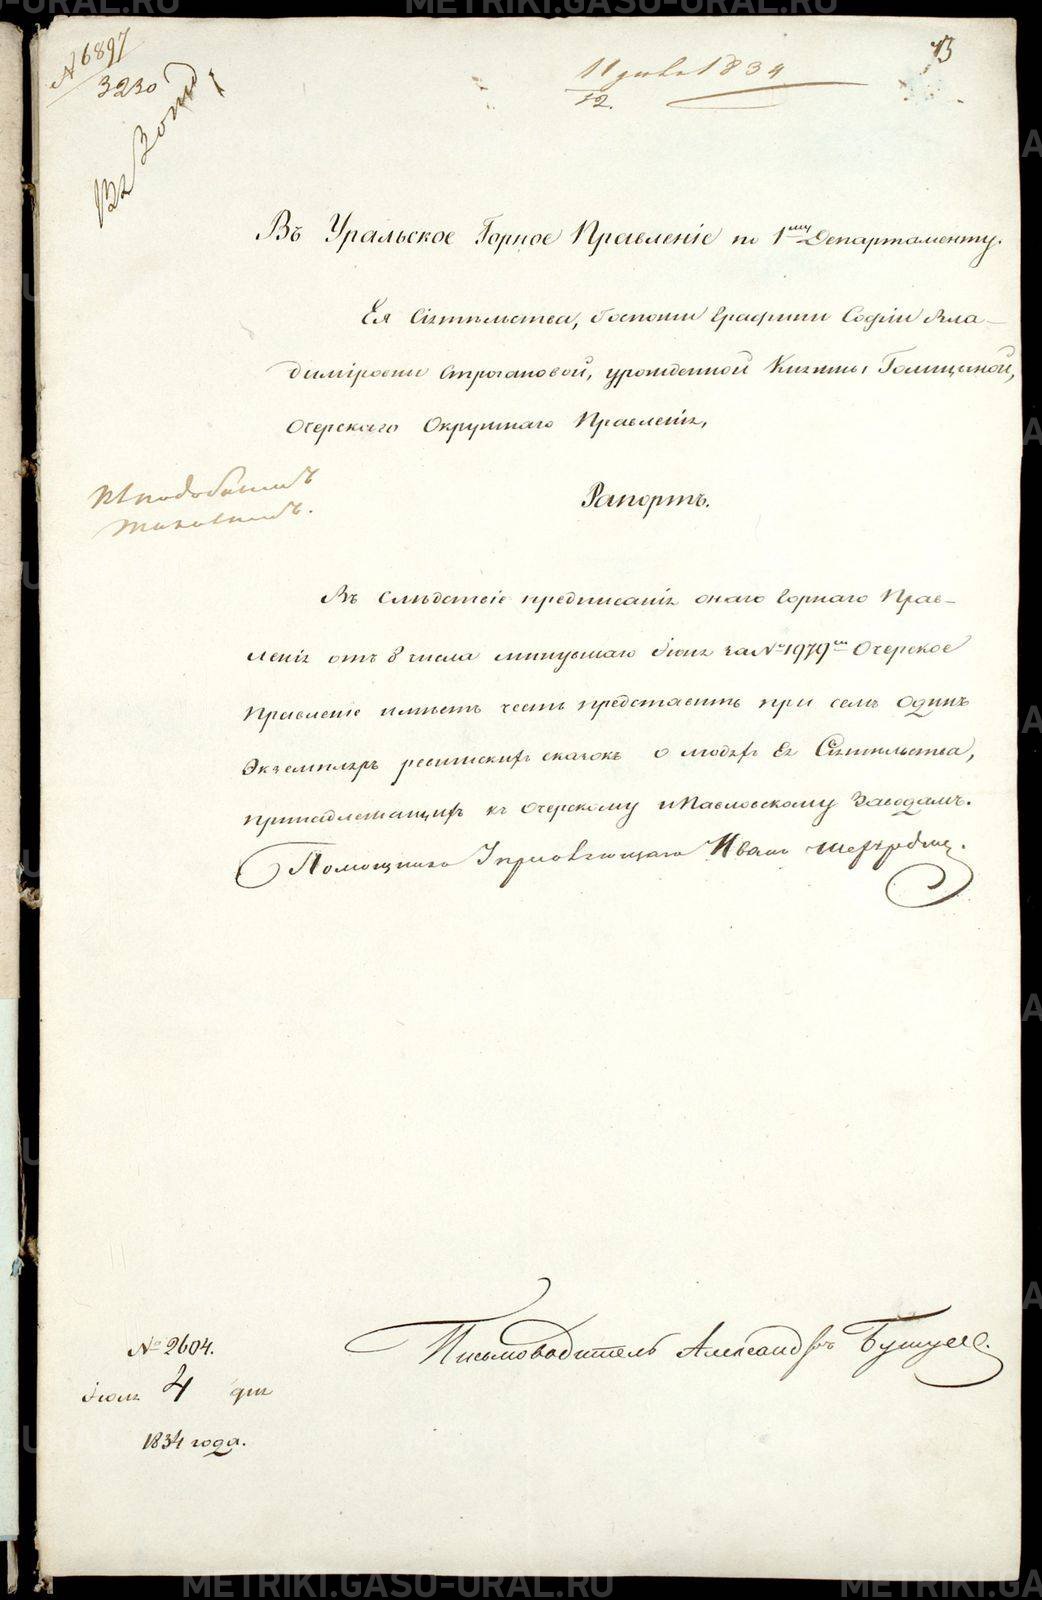 METRIKI.GASU-URAL.RU
№ 6897
3230
11 июля 1834
12.
13
Въ Уральское Горное Правленіе по 1му Департаменту.
Ея Сіятельства, Госпожи Графини Софіи Вла-
диміровны Строгановой, урожденной Княжны Голицыной,
Очерскаго Окружнаго Правленія,
Рапортъ.
Въ следствіе предписанія онаго Горнаго Прав-
ленія отъ 8 числа минувшаго Июня за № 1979м Очерское
Правленіе имѣетъ честь представить при семъ одинъ
Экземпляръ ревижскихъ сказокъ о людяхъ Ея Сіятельства,
принадлежащихъ къ Очерскому и Павловскому Заводамъ.
Помощникъ Управляющаго Иванъ
Письмоводитель Александръ
№ 2604.
Июля 4 дня
1834 года.
METRIKI.GASU-URAL.RU